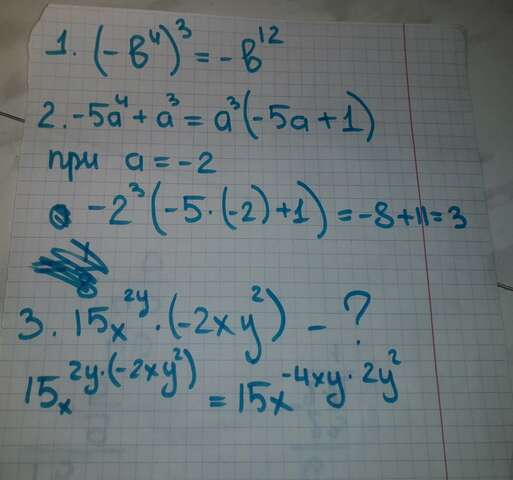 1. (-в⁴)³ = -в¹²
2. -5a⁴ + a³ = a³(-5a + 1)
при a = -2
-2³(-5 · (-2) + 1) = -8 + 11 = 3
3. 15x²ʸ · (-2xy²) - ?
15x^2y·(-2xy²) = 15x^-4xy · 2y²